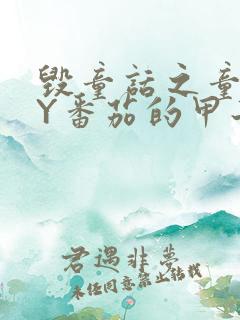 毁童话之童
Y番茄的甲
君遇非梦
未经同意禁止转载